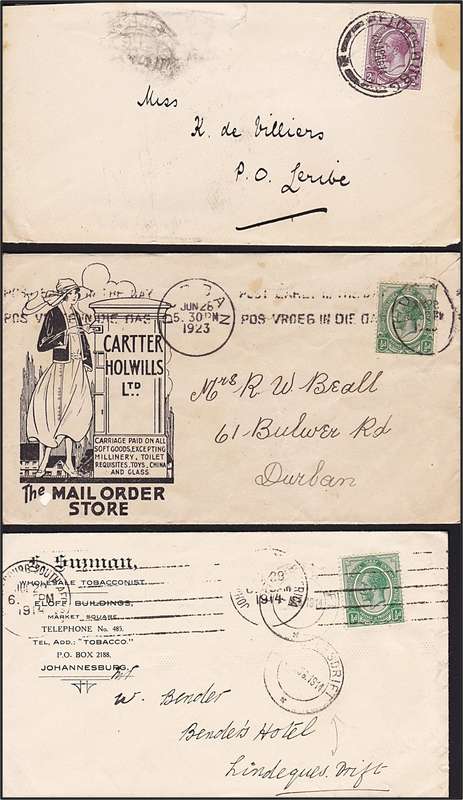 Miss
K. de Villiers
P.O. Leribe
2d
POS VROEG IN DIE DAG
JUN 26
5.30 PM
1923
POST EARLY IN THE
POS VROEG IN DIE DA
½d ½d
CARTTER
HOLWILLS
LTD.
CARRIAGE PAID ON ALL
SOFT GOODS, EXCEPTING
MILLINERY, TOILET
REQUISITES, TOYS, CHINA
AND GLASS
The MAIL ORDER
STORE
Mrs R. W. Beall
61 Bulwer Rd
Durban
Suzman,
WHOLESALE TOBACCONIST,
ELOFF BUILDINGS,
MARKET SQUARE,
TELEPHONE No. 485.
TEL. ADD.: "TOBACCO."
P.O. BOX 2188,
JOHANNESBURG.
PM
1914
29
1914
½d ½d
W. Bender
Bender's Hotel
Lindeques Drift